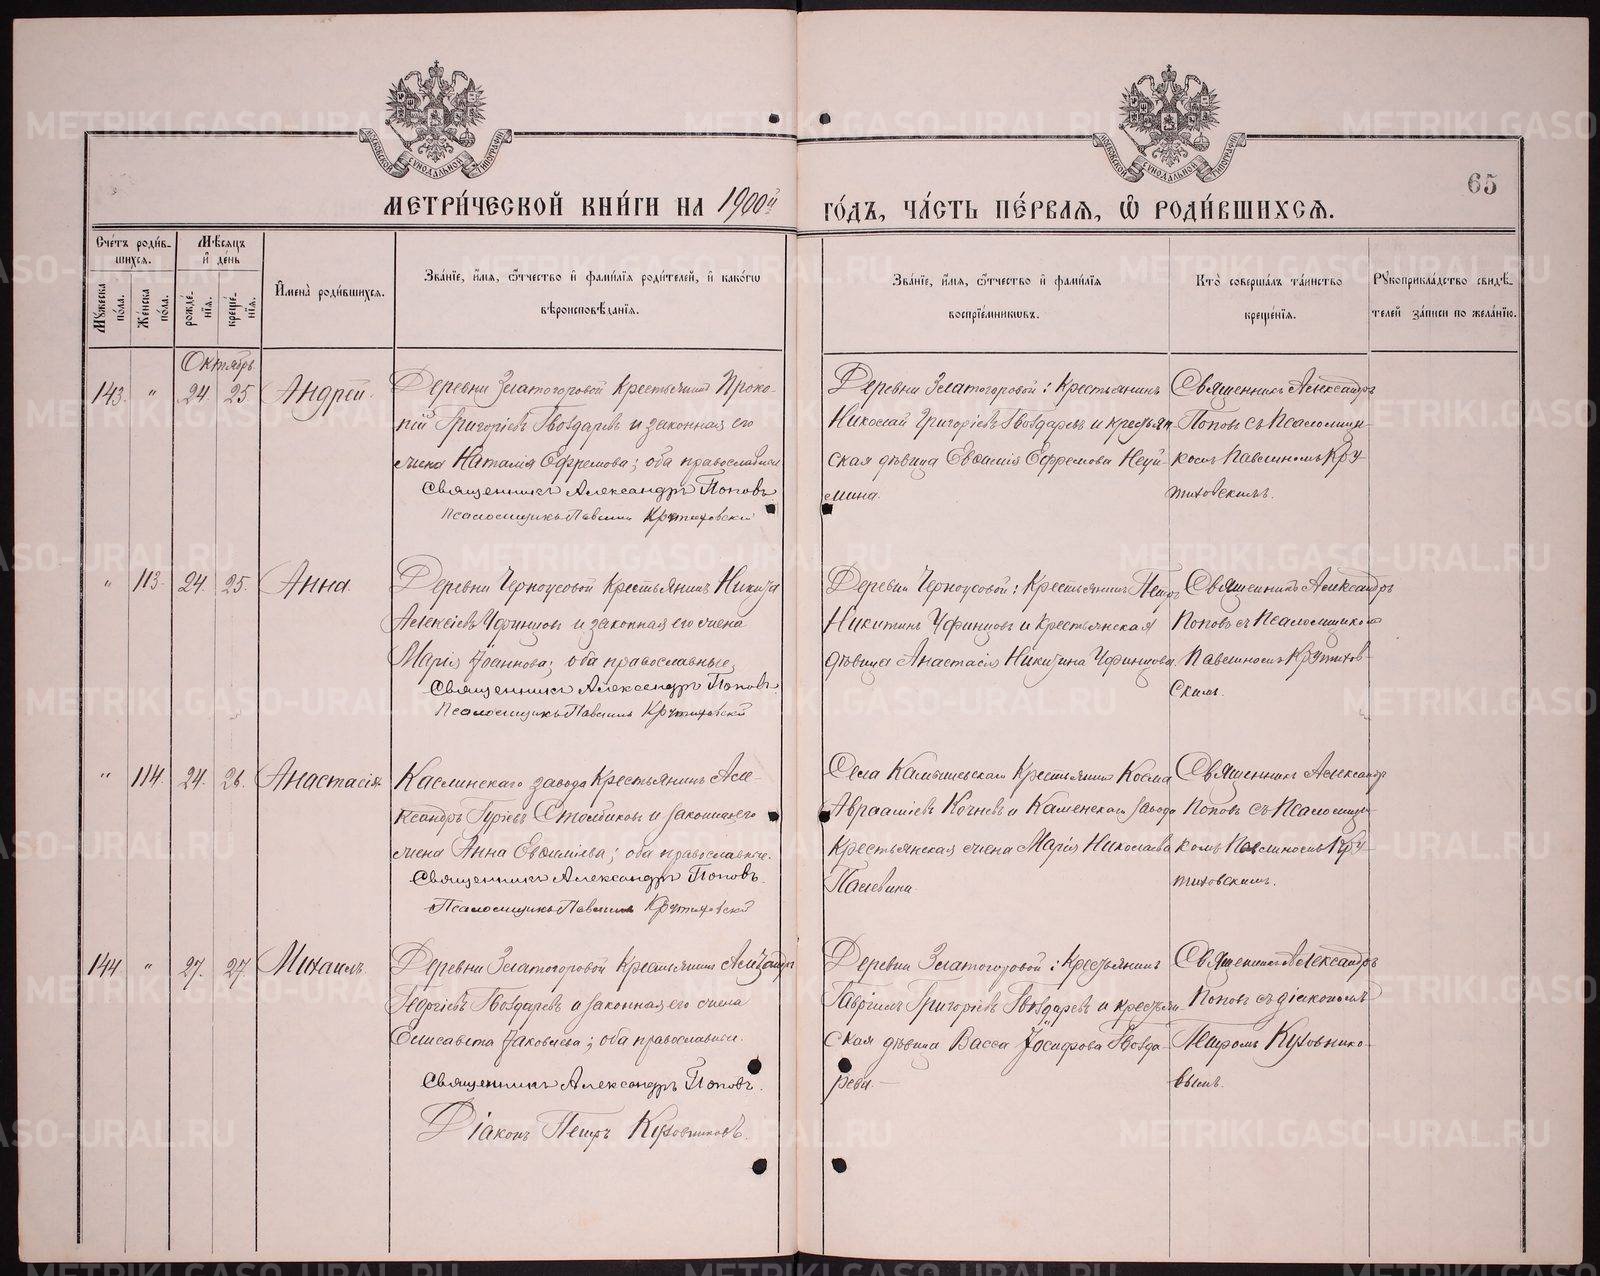 МЕТРИ́ЧЕСКОЙ КНИ́ГИ НА 1900й
ГО́ДЪ, ЧА́СТЬ ПЕ́РВАЯ, Ѿ РОДИ́ВШИХСЯ.
65
Сче́тъ роди́в-
шихся.
Мѣ́сяцъ
и҆ де́нь
Му́жеска
по́ла.
Же́нска
по́ла.
рожде́-
нїя.
креще́-
нїя.
И҆мена̀ роди́вшихся.
Зва́нїе, и҆́мя, ѻ҆́тчество и҆ фами́лїя роди́телей, и҆ како́гѡ
вѣроисповѣ́данїя.
Зва́нїе, и҆́мя, ѻ҆́тчество и҆ фами́лїя
воспрїе́мникѡвъ.
Кто̀ соверша́лъ та́инство
креще́нїя.
Рꙋкоприкла́дство свидѣ́-
телей за́писи по жела́нїю.
Октябрь
143. " 24. 25 Андрей.
Деревни Златогоровой Крестьянинъ Проко-
пій Григоріевъ Гвоздаревъ и законная его
жена Наталія Ефремова; оба православные
Священникъ Александръ Поповъ
Псаломщикъ Павлинъ Крутиховскій
Деревни Златогоровой: Крестьянинъ
Николай Григоріевъ Гвоздаревъ и крестьян
ская дѣвица Евфимія Ефремова Неуй-
мина.
Священникъ Александръ
Поповъ съ Псаломщи-
комъ Павлиномъ Кру-
тиховскимъ.
" 113. 24. 25. Анна.
Деревни Черноусовой Крестьянинъ Никита
Алексіевъ Уфинцовъ и законная его жена
Марія Іоаннова; оба православные;
Священникъ Александръ Поповъ
Псаломщикъ Павлинъ Крутиховскій
Деревни Черноусовой: Крестьянинъ Петръ
Никитинъ Уфинцовъ и крестьянская
дѣвица Анастасія Никитина Уфинцова.
Священникъ Александръ
Поповъ съ Псаломщикомъ
Павлиномъ Крутихов-
скимъ.
" 114. 24. 26. Анастасія
Каслинскаго завода Крестьянинъ Але-
ксандръ Гуріевъ Столбиковъ и законная его
жена Анна Евфиміева; оба православные.
Священникъ Александръ Поповъ.
Псаломщикъ Павлинъ Крутиховскій
Села Камышевскаго Крестьянинъ Косма
Авраамиевъ Кочневъ и Каменскаго завода
Крестьянская жена Марія Николаева
Священникъ Александръ
Поповъ съ Псаломщи-
комъ Павлиномъ Кру-
тиховскимъ.
144 " 27. 27. Михаилъ.
Деревни Златогоровой Крестьянинъ Александръ
Георгіевъ Гвоздаревъ и законная его жена
Елисавета Іаковлева; оба православные.
Священникъ Александръ Поповъ.
Діаконъ Петръ Кузовниковъ.
Деревни Златогоровой: Крестьянинъ
Гавріилъ Григоріевъ Гвоздаревъ и крестьян-
ская дѣвица Васса Іосифова Гвозда-
рева.
Священникъ Александръ
Поповъ съ діакономъ
Петромъ Кузовнико-
вымъ.
METRIKI.GASO-URAL.RU